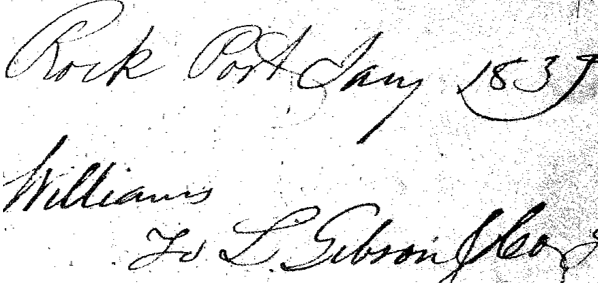 Rock Port Jany 1839
Williams
To L. Gibson & Co